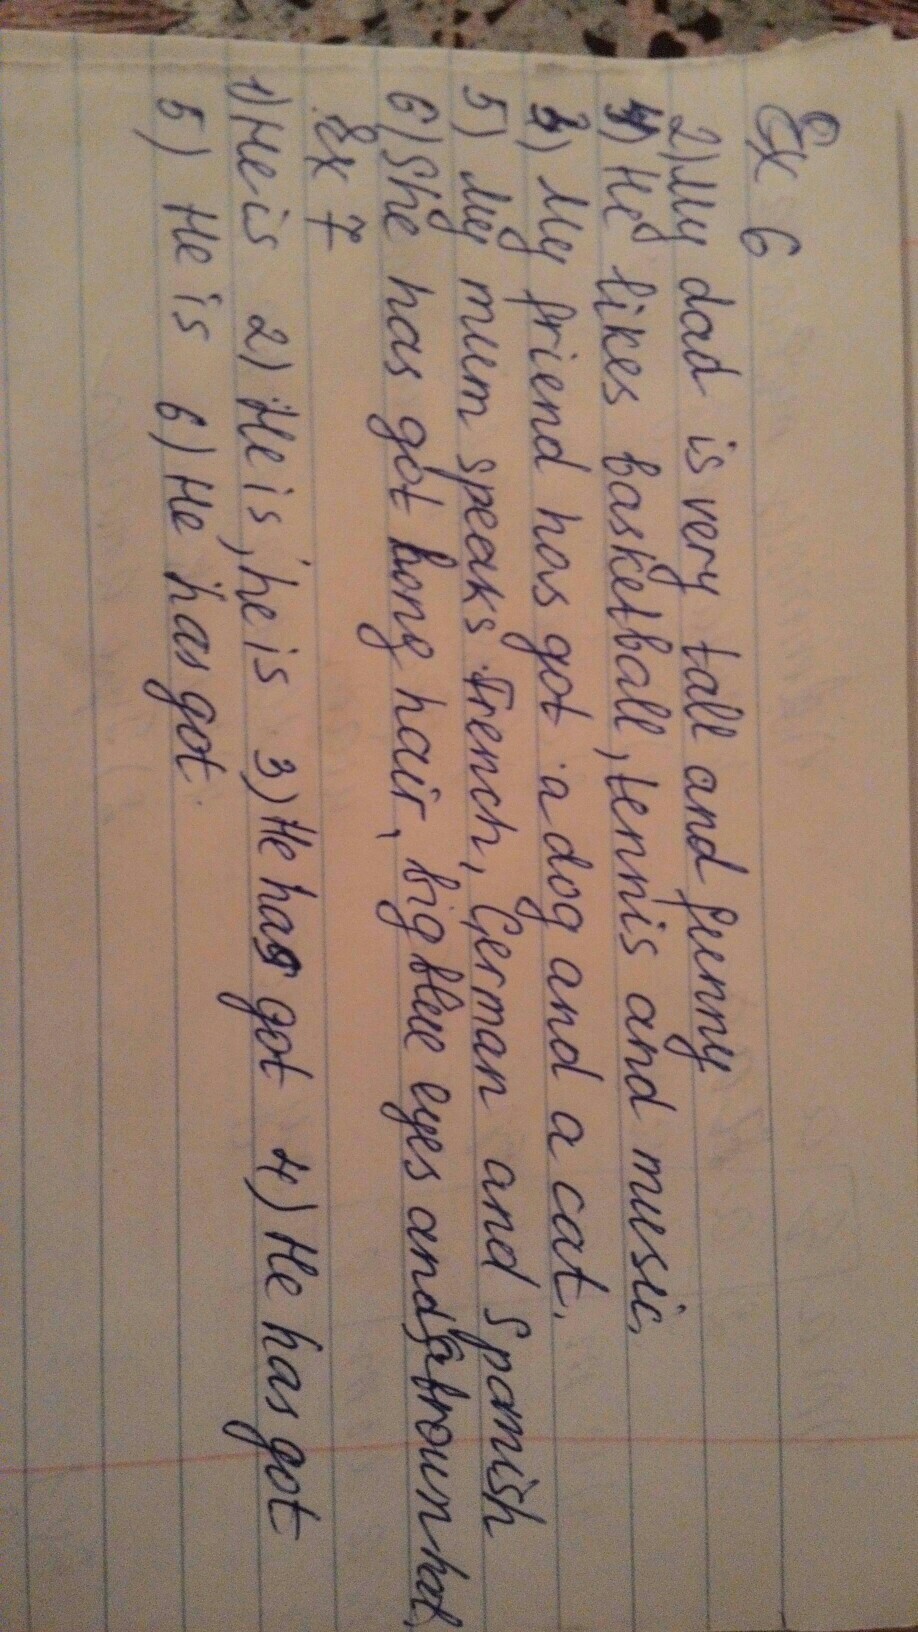 Ex 6
2) My dad is very tall and funny
4) He likes basketball, tennis and music.
3) My friend has got a dog and a cat.
5) My mum speaks French, German and Spanish
6) She has got long hair, big blue eyes and a brown hat.
Ex 7
1) He is 2) He is, he is 3) He has got 4) He has got
5) He is 6) He has got.